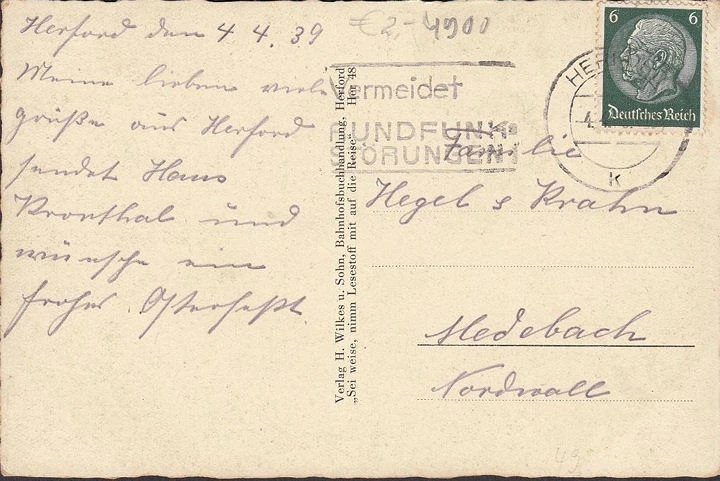 Herford den 4 4. 39
Meine lieben viele
grüße aus Herford
sendet Hans
Kronthal und
wünsche ein
frohes Osterfest.
€ 2,- 4900
Vermeidet
RUNDFUNK-
STÖRUNGEN
6 6
Deutsches Reich
HERFORD
4.
k
Verlag H. Wilkes u. Sohn, Bahnhofsbuchhandlung, Herford
Her 48
„Sei weise, nimm Lesestoff mit auf die Reise“
Familie
Hegel s Krahn
Medebach
Nordwall
49